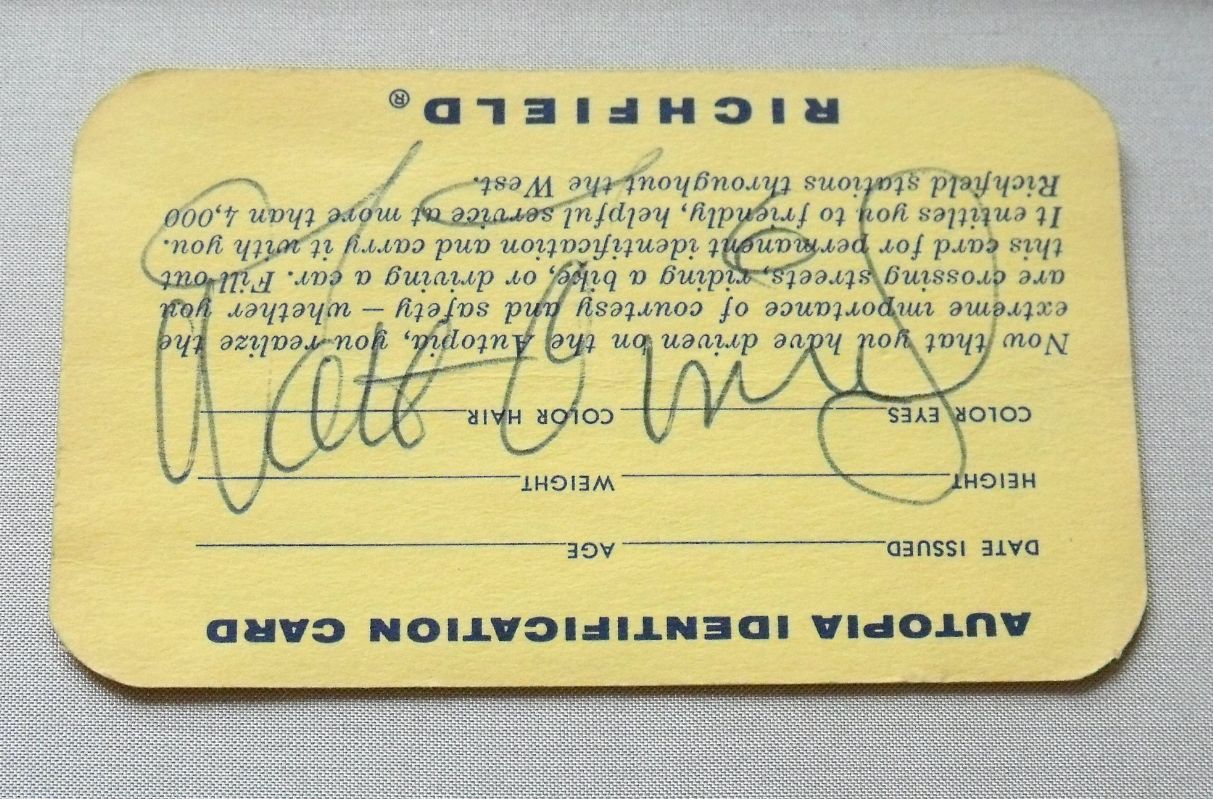 AUTOPIA IDENTIFICATION CARD
DATE ISSUED AGE
HEIGHT WEIGHT
COLOR EYES COLOR HAIR
Now that you have driven on the Autopia, you realize the
extreme importance of courtesy and safety — whether you
are crossing streets, riding a bike, or driving a car. Fill out
this card for permanent identification and carry it with you.
It entitles you to friendly, helpful service at more than 4,000
Richfield stations throughout the West.
RICHFIELD®
Walt Disney